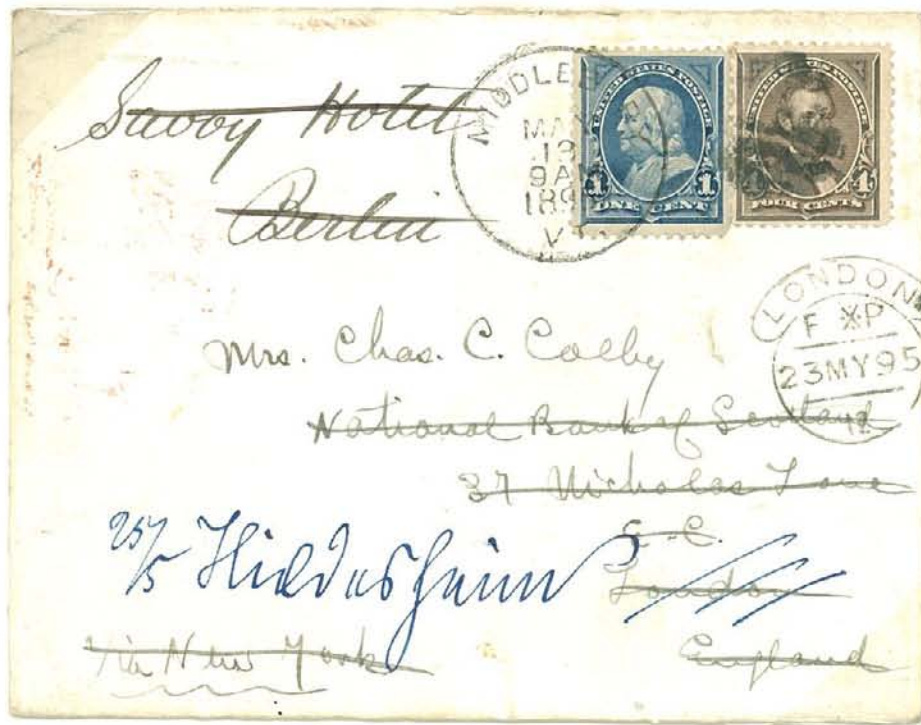 Savoy Hotel
Berlin
MIDDLEB
MAY
13
9AM
189
VT.
UNITED STATES POSTAGE
1 1
ONE CENT
UNITED STATES POSTAGE
4 4
FOUR CENTS
LONDON
F P
23MY95
Mrs. Chas. C. Colby
National Bank of Scotland
37 Nicholas Lane
E.C.
London
England
25/5 Hildesheim
via New York